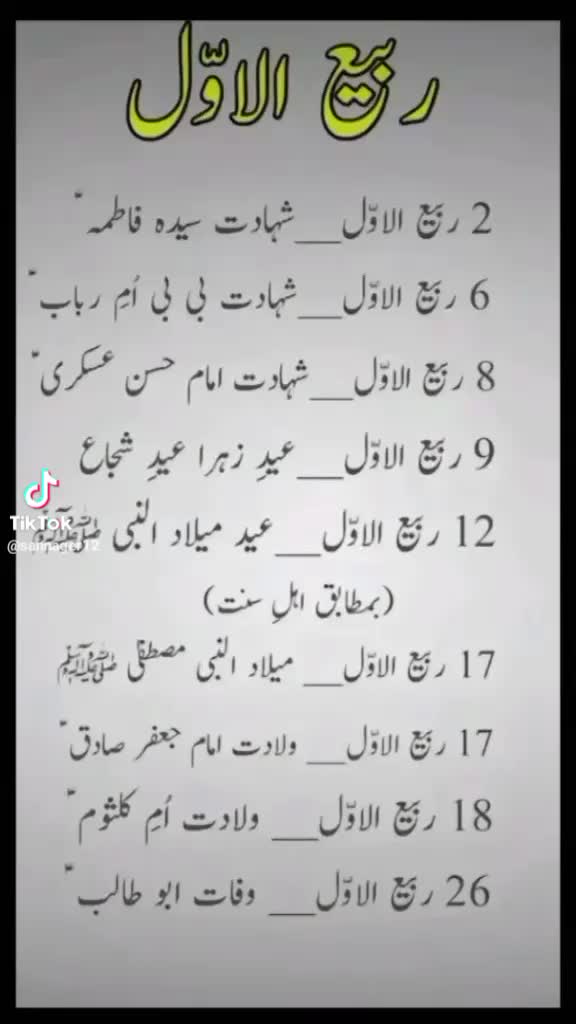 ربیع الاوّل
2 ربیع الاوّل__شہادت سیدہ فاطمہ ؑ
6 ربیع الاوّل__شہادت بی بی اُمِ رباب ؑ
8 ربیع الاوّل__شہادت امام حسن عسکری ؑ
9 ربیع الاوّل__عیدِ زہرا عیدِ شجاع
12 ربیع الاوّل__عید میلاد النبی ﷺ
(بمطابق اہلِ سنت)
17 ربیع الاوّل__ میلاد النبی مصطفٰی ﷺ
17 ربیع الاوّل__ ولادت امام جعفر صادق ؑ
18 ربیع الاوّل__ ولادت اُمِ کلثوم ؑ
26 ربیع الاوّل__ وفات ابو طالب ؑ
TikTok